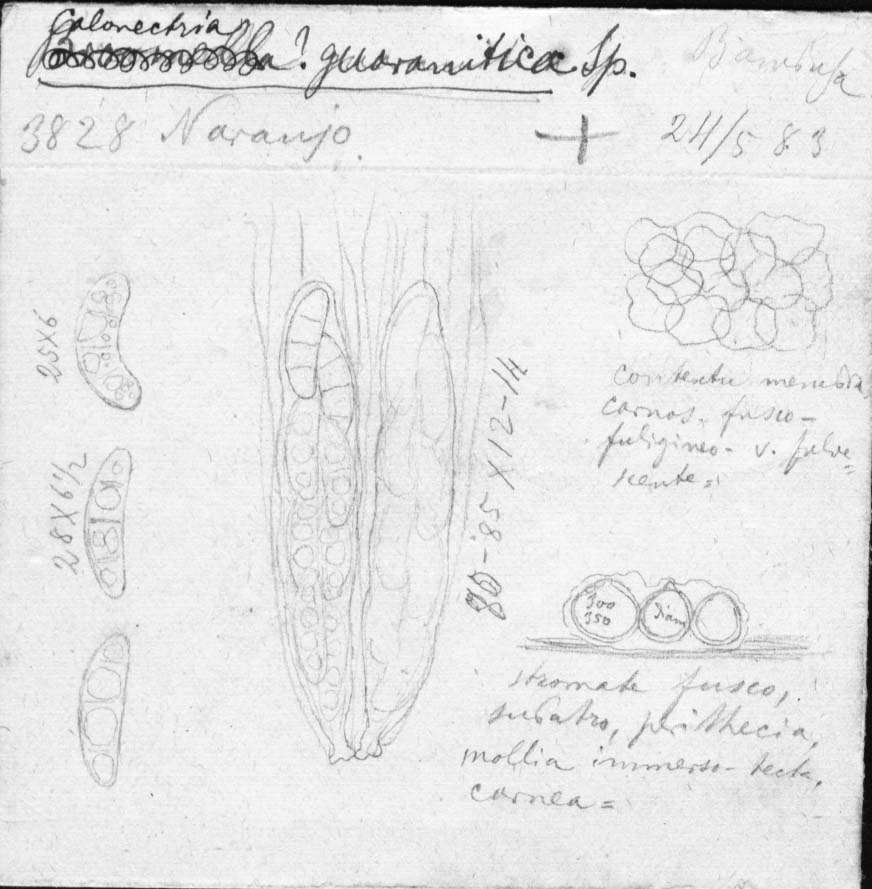 Calonectria
? guaranitica Sp.
Bambusa
3828 Naranjo + 24/5 83
25X6
28X6½
80-85 X 12-14
contextu membra
carnos. fusco-
fuligineo- v. fulve=
scente=
300
350
diam
stromate fusco,
subatro, perithecia,
mollia immerso-tecta,
carnea=